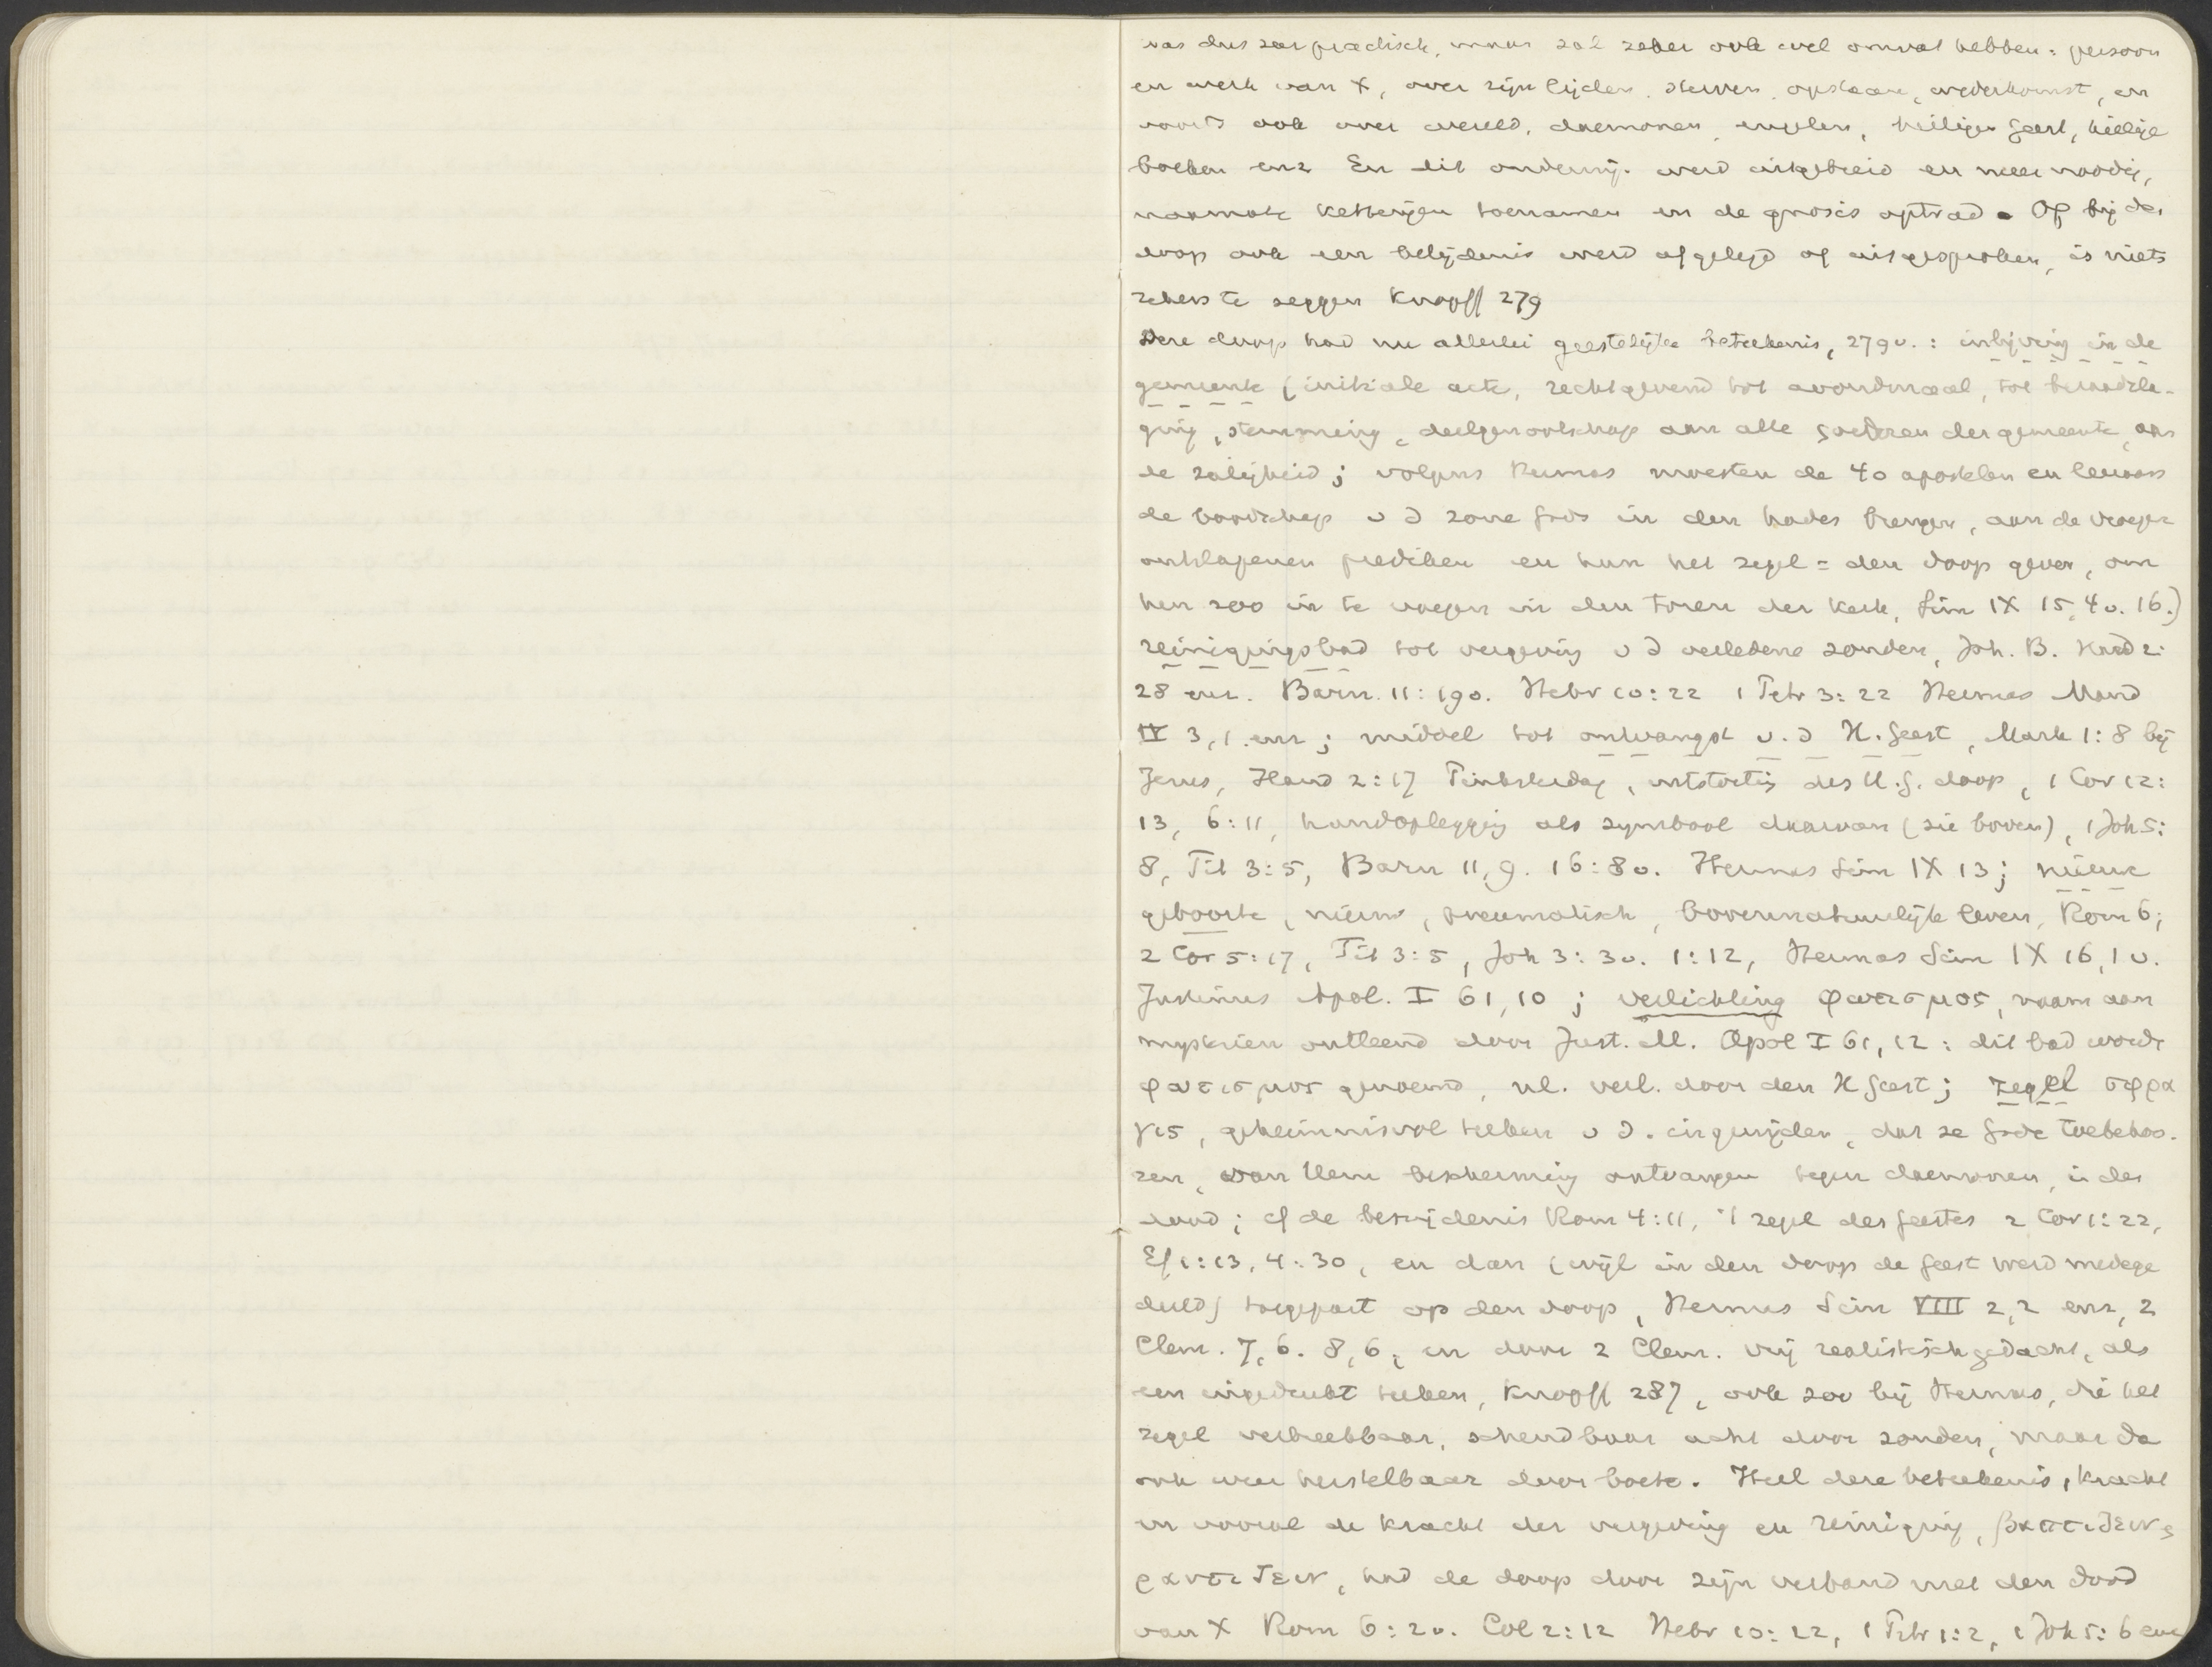 was dus zeer practisch, maar zal zeker ook wel omvat hebben: persoon
en werk van X, over zijn lijden, sterven, opstaan, wederkomst, en
voorts ook over wereld, daemonen, engelen, heiligen Geest, heilige
boeken enz En dit onderwij. werd uitgebreid en meer noodig,
naarmate ketterijen toenamen en de gnosis optrad. Of bij den
doop ook een belijdenis werd afgelegd of uitgesproken, is niets
zekers te zeggen Knopff 279
Deze doop had nu allerlei geestelijke beteekenis, 279v.: inlijving in de
gemeente (initiale acte, rechtgevend tot avondmaal, tot beraadsla-
ging, stemming, deelgenootschap aan alle goederen der gemeente, aan
de zaligheid; volgens Hermas moesten de 40 apostelen en leeraars
de boodschap v d zone Gods in den hades brengen, aan de vroeger
ontslapenen prediken en hun het zegel = den doop geven, om
hen zoo in te voegen in den toren der kerk, Sim IX 15,4v. 16.)
reinigingsbad tot vergeving v d verledene zonden, Joh. B. Hand 2:
28 enz. Barn. 11:19v. Hebr 10:22 1 Petr 3:22 Hermas Mand
IV 3,1. enz; middel tot ontvangst v. d H. Geest, Mark 1:8 bij
Jezus, Hand 2:17 Pinksterdag, uitstorting des H.G. doop, 1 Cor 12:
13, 6:11, handoplegging als symbool daarvan (zie boven), 1 Joh 5:
8, Tit 3:5, Barn 11,9. 16:8v. Hermas Sim IX 13; nieuwe
geboorte, nieuw, pneumatisch, bovennatuurlijk leven, Rom 6;
2 Cor 5:17, Tit 3:5, Joh 3:3v. 1:12, Hermas Sim IX 16,1v.
Justinus Apol. I 61,10; verlichting φωτισμος, naam aan
mysteriën ontleend door Just. M. Apol I 61,12: dit bad wordt
φωτισμος genoemd, nl. verl. door den H Geest; zegel σφρα
γις, geheimnisvol teeken v d. ingewijden, dat ze Gode toebehoo-
ren, van Hem bescherming ontvangen tegen daemonen, in den
dood; cf de besnijdenis Rom 4:11, 't zegel des Geestes 2 Cor 1:22,
Ef 1:13, 4:30, en dan (wijl in den doop de Geest werd medege
deeld) toegepast op den doop, Hermas Sim VIII 2,2 enz, 2
Clem. 7,6. 8,6, en door 2 Clem. vrij realistisch gedacht, als
een ingedrukt teeken, Knopff 287, ook zoo bij Hermas, die het
zegel verbreekbaar, schendbaar acht door zonden, maar dan
ook weer herstelbaar door boete. Heel deze beteekenis, kracht
en vooral de kracht der vergeving en reiniging, βαπτιζειν &
ραντιζειν, had de doop door zijn verband met den dood
van X Rom 6:2v. Col 2:12 Hebr 10:22, 1 Petr 1:2, 1 Joh 5:6 enz